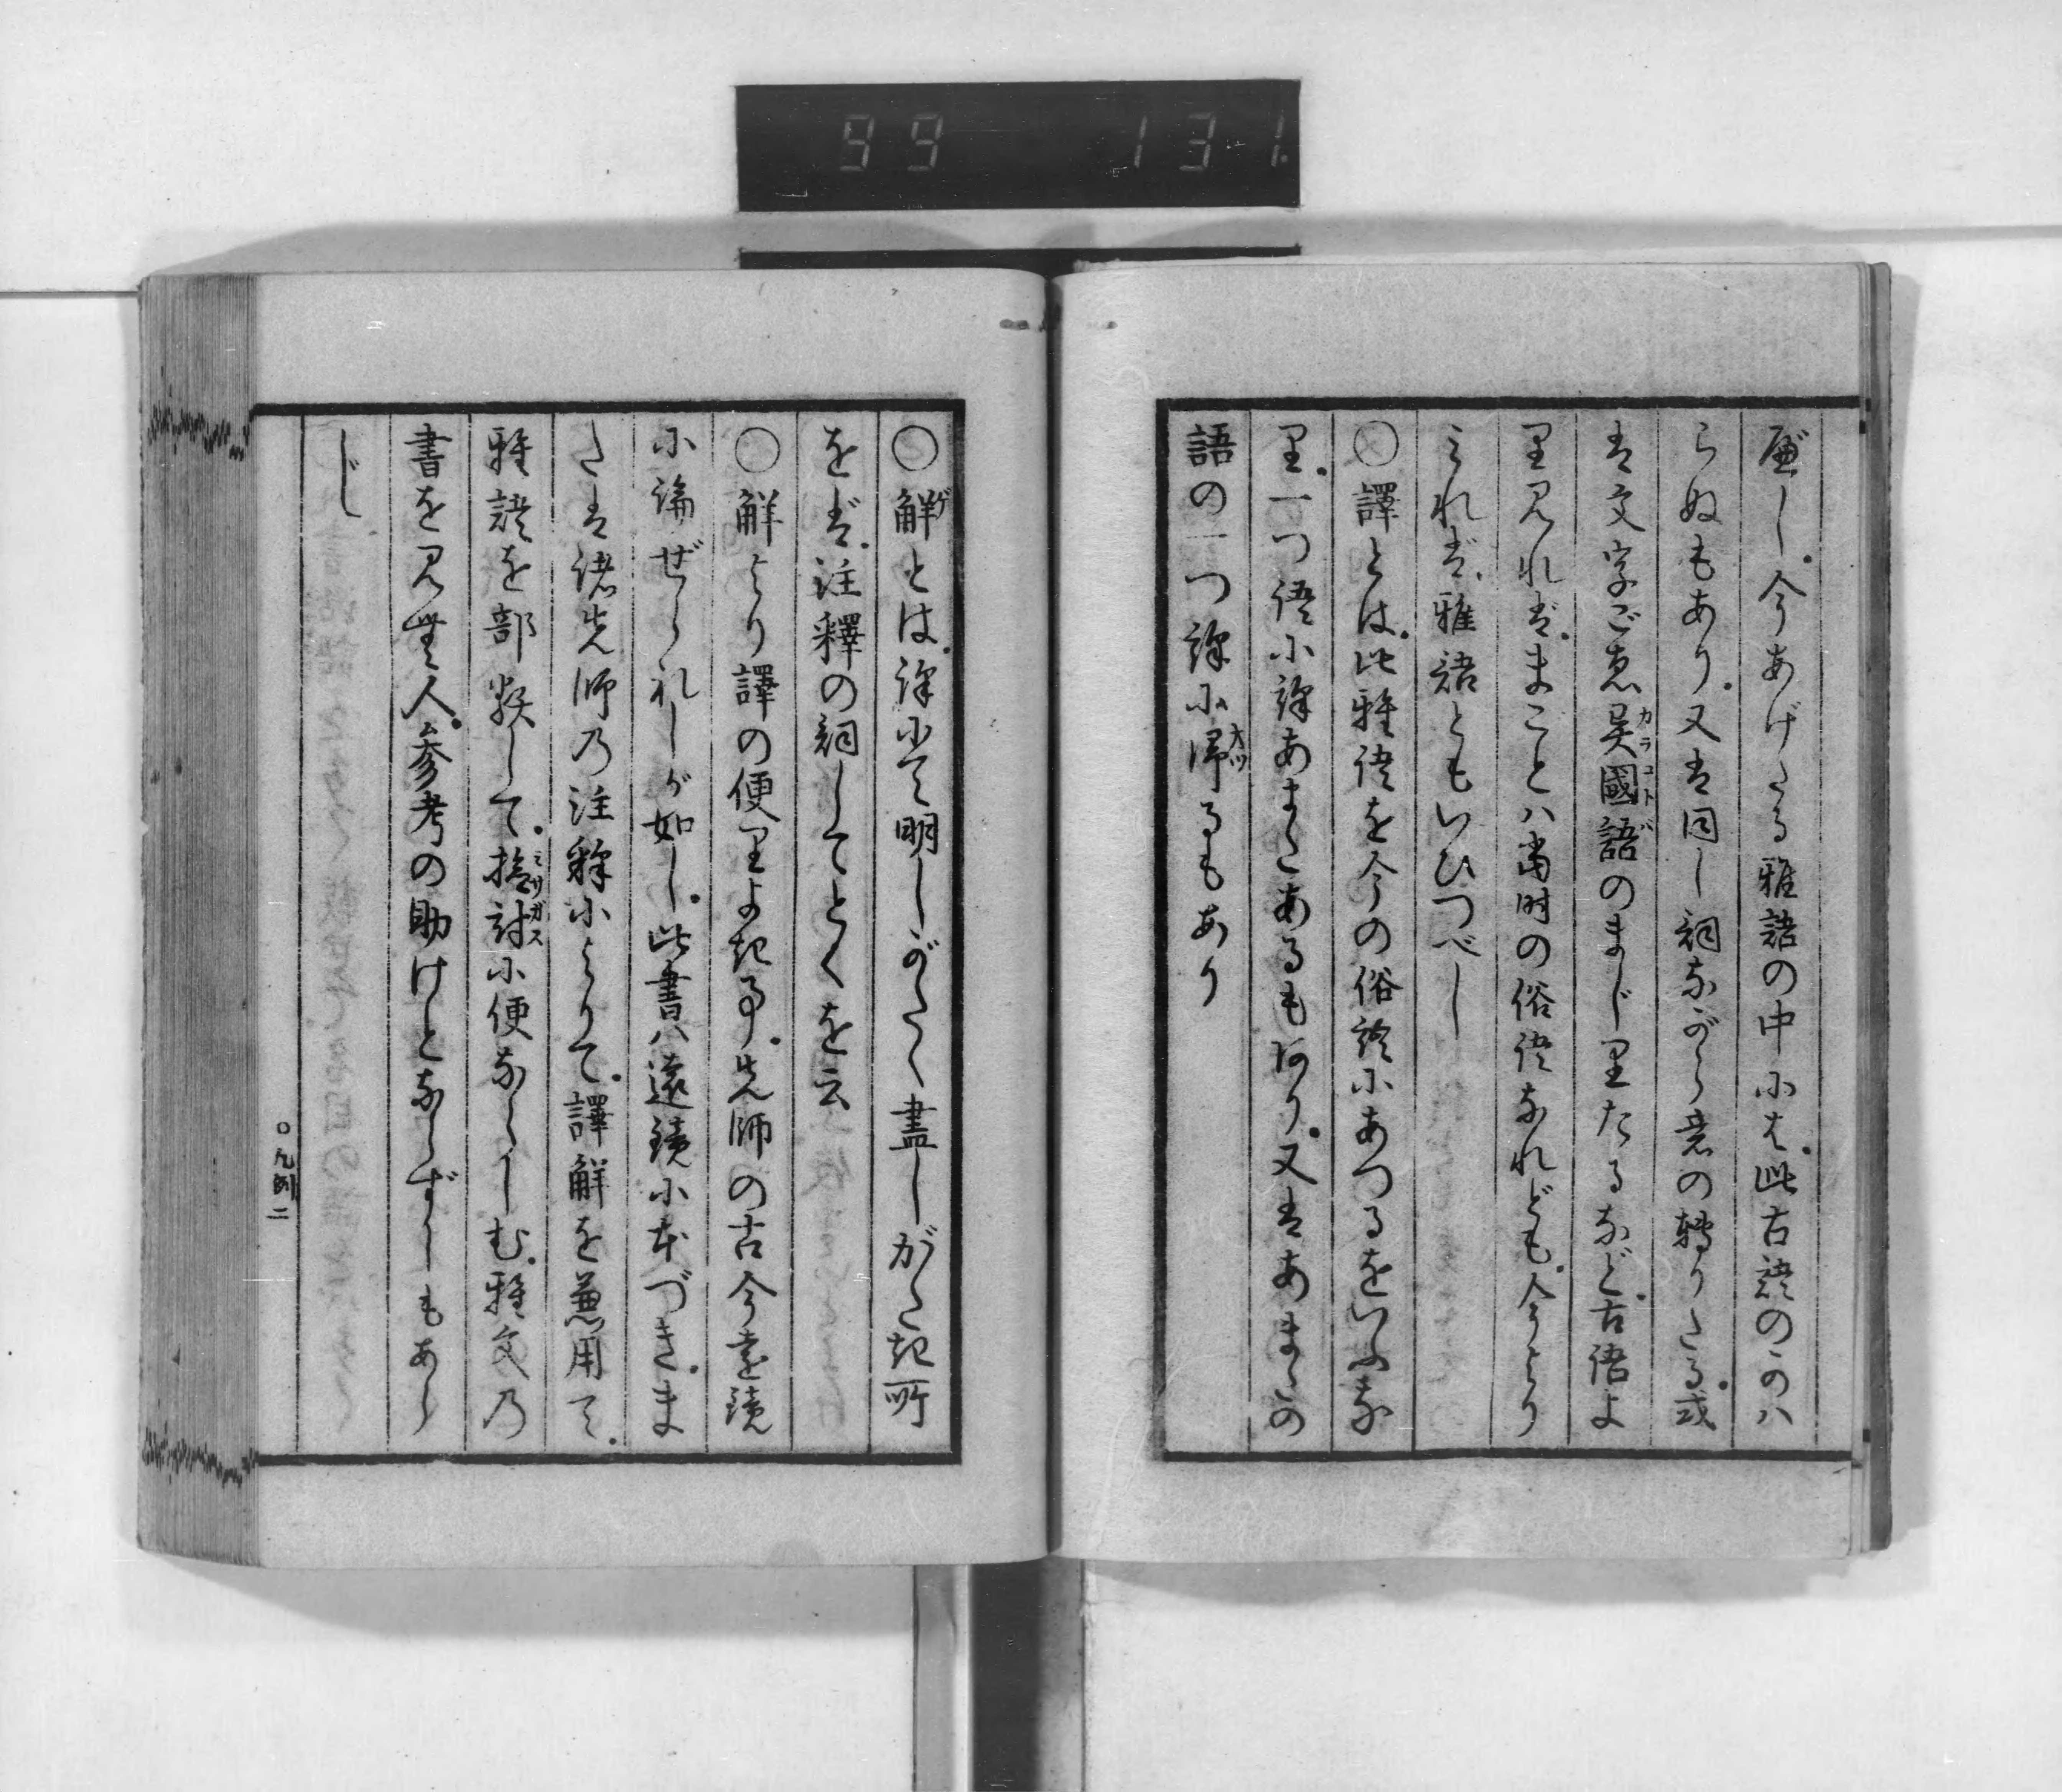 99 131.
べし。今あげたる雅語の中には。此古語のかハ
らぬもあり。又は同し詞ながら意の轉りたる。或
は文字ごゑ異國語のまじりたるなど。古語よ
カラコトバ
り見れば。まことハ當時の俗語なれども。今より
みれば。雅語ともいひつべし
○譯とは。此雅語を今の俗語にあつるをいふな
り。一つ語に譯あまたあるもあり。又はあまたの
語の一つ譯に帰るもあり
オツ
○解とは。譯にて明しがたく盡しがたき所
ゲ
をば。注釋の詞してとくを云
○解より譯の便りよき事。先師の古今遠鏡
に論ぜられしが如し。此書ハ遠鏡に本づき。ま
たは諸先師の注釋によりて。譯解を兼用て。
雅語を部類して。捻討に便ならしむ。雅文の
ミサガス
書を見む人。参考の助けとならずしもあら
じし
○凡例 二